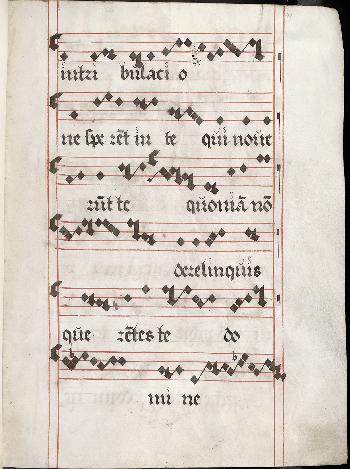 in tri bulaci o
ne spe rēt in te qui noue
rūt te quoniā nō
derelinquis
que rētes te do
mi ne